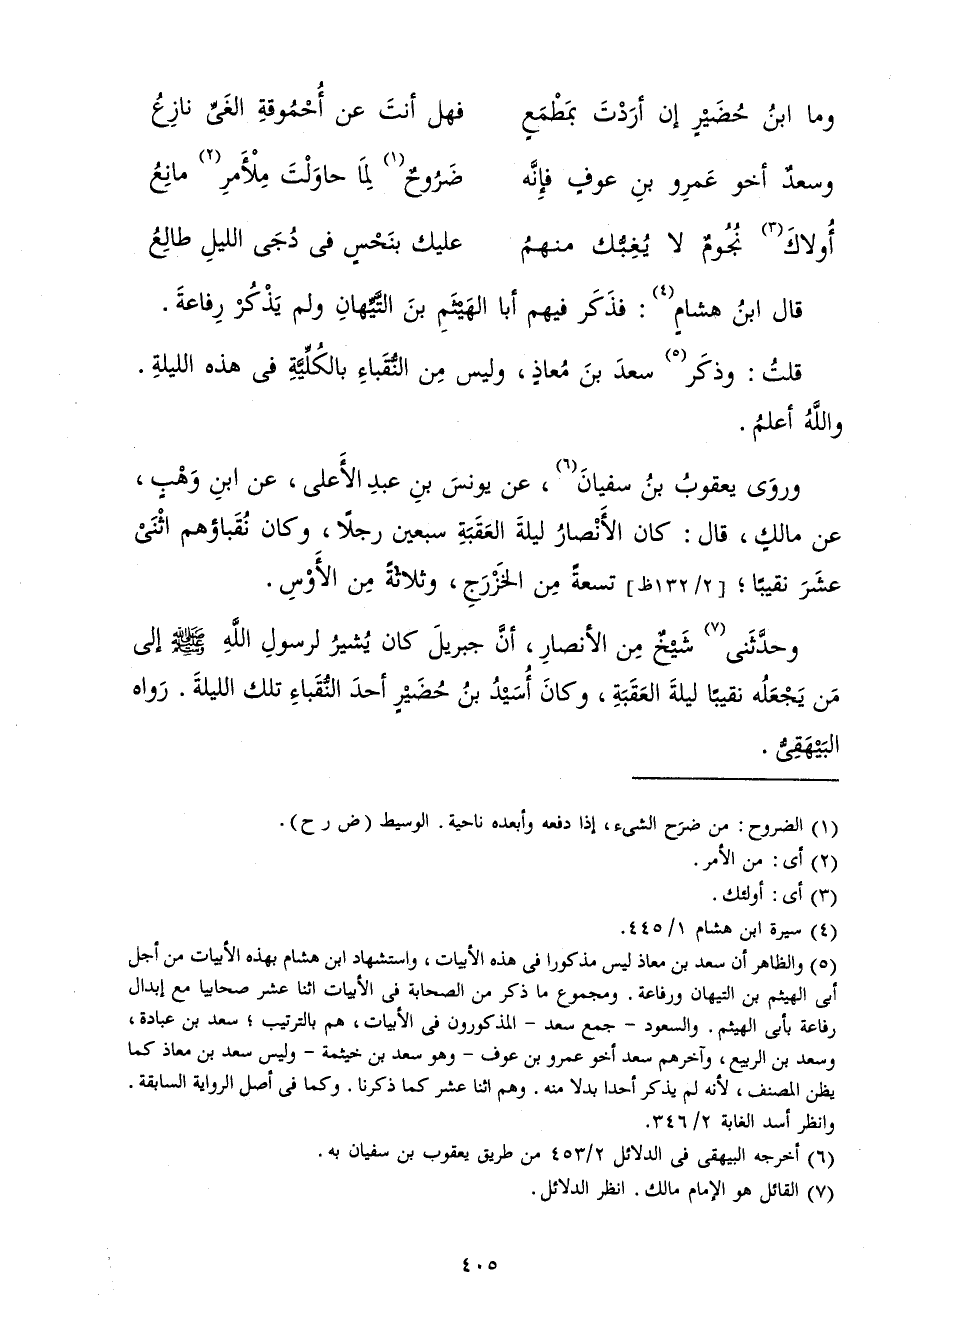 وما ابنُ حُضَيْرٍ إن أرَدْتَ بمَطْمَعٍ فهل أنتَ عن أُحْمُوقةِ الغَىِّ نازِعُ
وسعدٌ أخو عَمرِو بنِ عوفٍ فإنَّه ضَرُوحٌ(١) لِمَا حاوَلْتَ مِلْأَمرِ(٢) مانِعُ
أُولاكَ(٣) نُجُومٌ لا يُغِبُّك منهمُ عليك بنَحْسٍ فى دُجَى الليلِ طالِعُ
قال ابنُ هشامٍ(٤) : فذَكَر فيهم أبا الهَيْثَمِ بنَ التَّيِّهانِ ولم يَذْكُرْ رِفاعةَ .
قلتُ : وذكَر(٥) سعدَ بنَ مُعاذٍ ، وليس مِن النُّقَباءِ بالكُلِّيَّةِ فى هذه الليلةِ .
واللَّهُ أعلمُ .
وروَى يعقوبُ بنُ سفيانَ(٦) ، عن يونسَ بنِ عبدِ الأَعلى ، عن ابنِ وَهْبٍ ،
عن مالكٍ ، قال : كان الأَنْصارُ ليلةَ العَقَبَةِ سبعين رجلًا ، وكان نُقَباؤهم اثْنَىْ
عشَرَ نقيبًا ؛ [١٣٢/٢ظ] تسعةً مِن الخَزْرَجِ ، وثلاثةً مِن الأَوْسِ .
وحدَّثَنى(٧) شَيْخٌ مِن الأنصارِ ، أنَّ جبريلَ كان يُشيرُ لرسولِ اللَّهِ ﷺ إلى
مَن يَجْعَلُه نقيبًا ليلةَ العَقَبَةِ ، وكانَ أُسَيْدُ بنُ حُضَيْرٍ أحدَ النُّقَباءِ تلك الليلةَ . رَواه
البَيْهَقِىُّ .
(١) الضروح : من ضرَح الشىء ، إذا دفعه وأبعده ناحية . الوسيط (ض ر ح) .
(٢) أى : من الأمر .
(٣) أى : أولئك .
(٤) سيرة ابن هشام ١/ ٤٤٥.
(٥) والظاهر أن سعد بن معاذ ليس مذكورا فى هذه الأبيات ، واستشهاد ابن هشام بهذه الأبيات من أجل
أبى الهيثم بن التيهان ورفاعة . ومجموع ما ذكر من الصحابة فى الأبيات اثنا عشر صحابيا مع إبدال
رفاعة بأبى الهيثم . والسعود - جمع سعد - المذكورون فى الأبيات ، هم بالترتيب ؛ سعد بن عبادة ،
وسعد بن الربيع ، وآخرهم سعد أخو عمرو بن عوف - وهو سعد بن خيثمة - وليس سعد بن معاذ كما
يظن المصنف ، لأنه لم يذكر أحدا بدلا منه . وهم اثنا عشر كما ذكرنا . وكما فى أصل الرواية السابقة .
وانظر أسد الغابة ٢/ ٣٤٦.
(٦) أخرجه البيهقى فى الدلائل ٤٥٣/٢ من طريق يعقوب بن سفيان به .
(٧) القائل هو الإمام مالك . انظر الدلائل .
٤٠٥